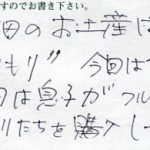 すのでお書き下さい。
回のお土産は
もり" 今回は
は息子がフル
りたちを購入し